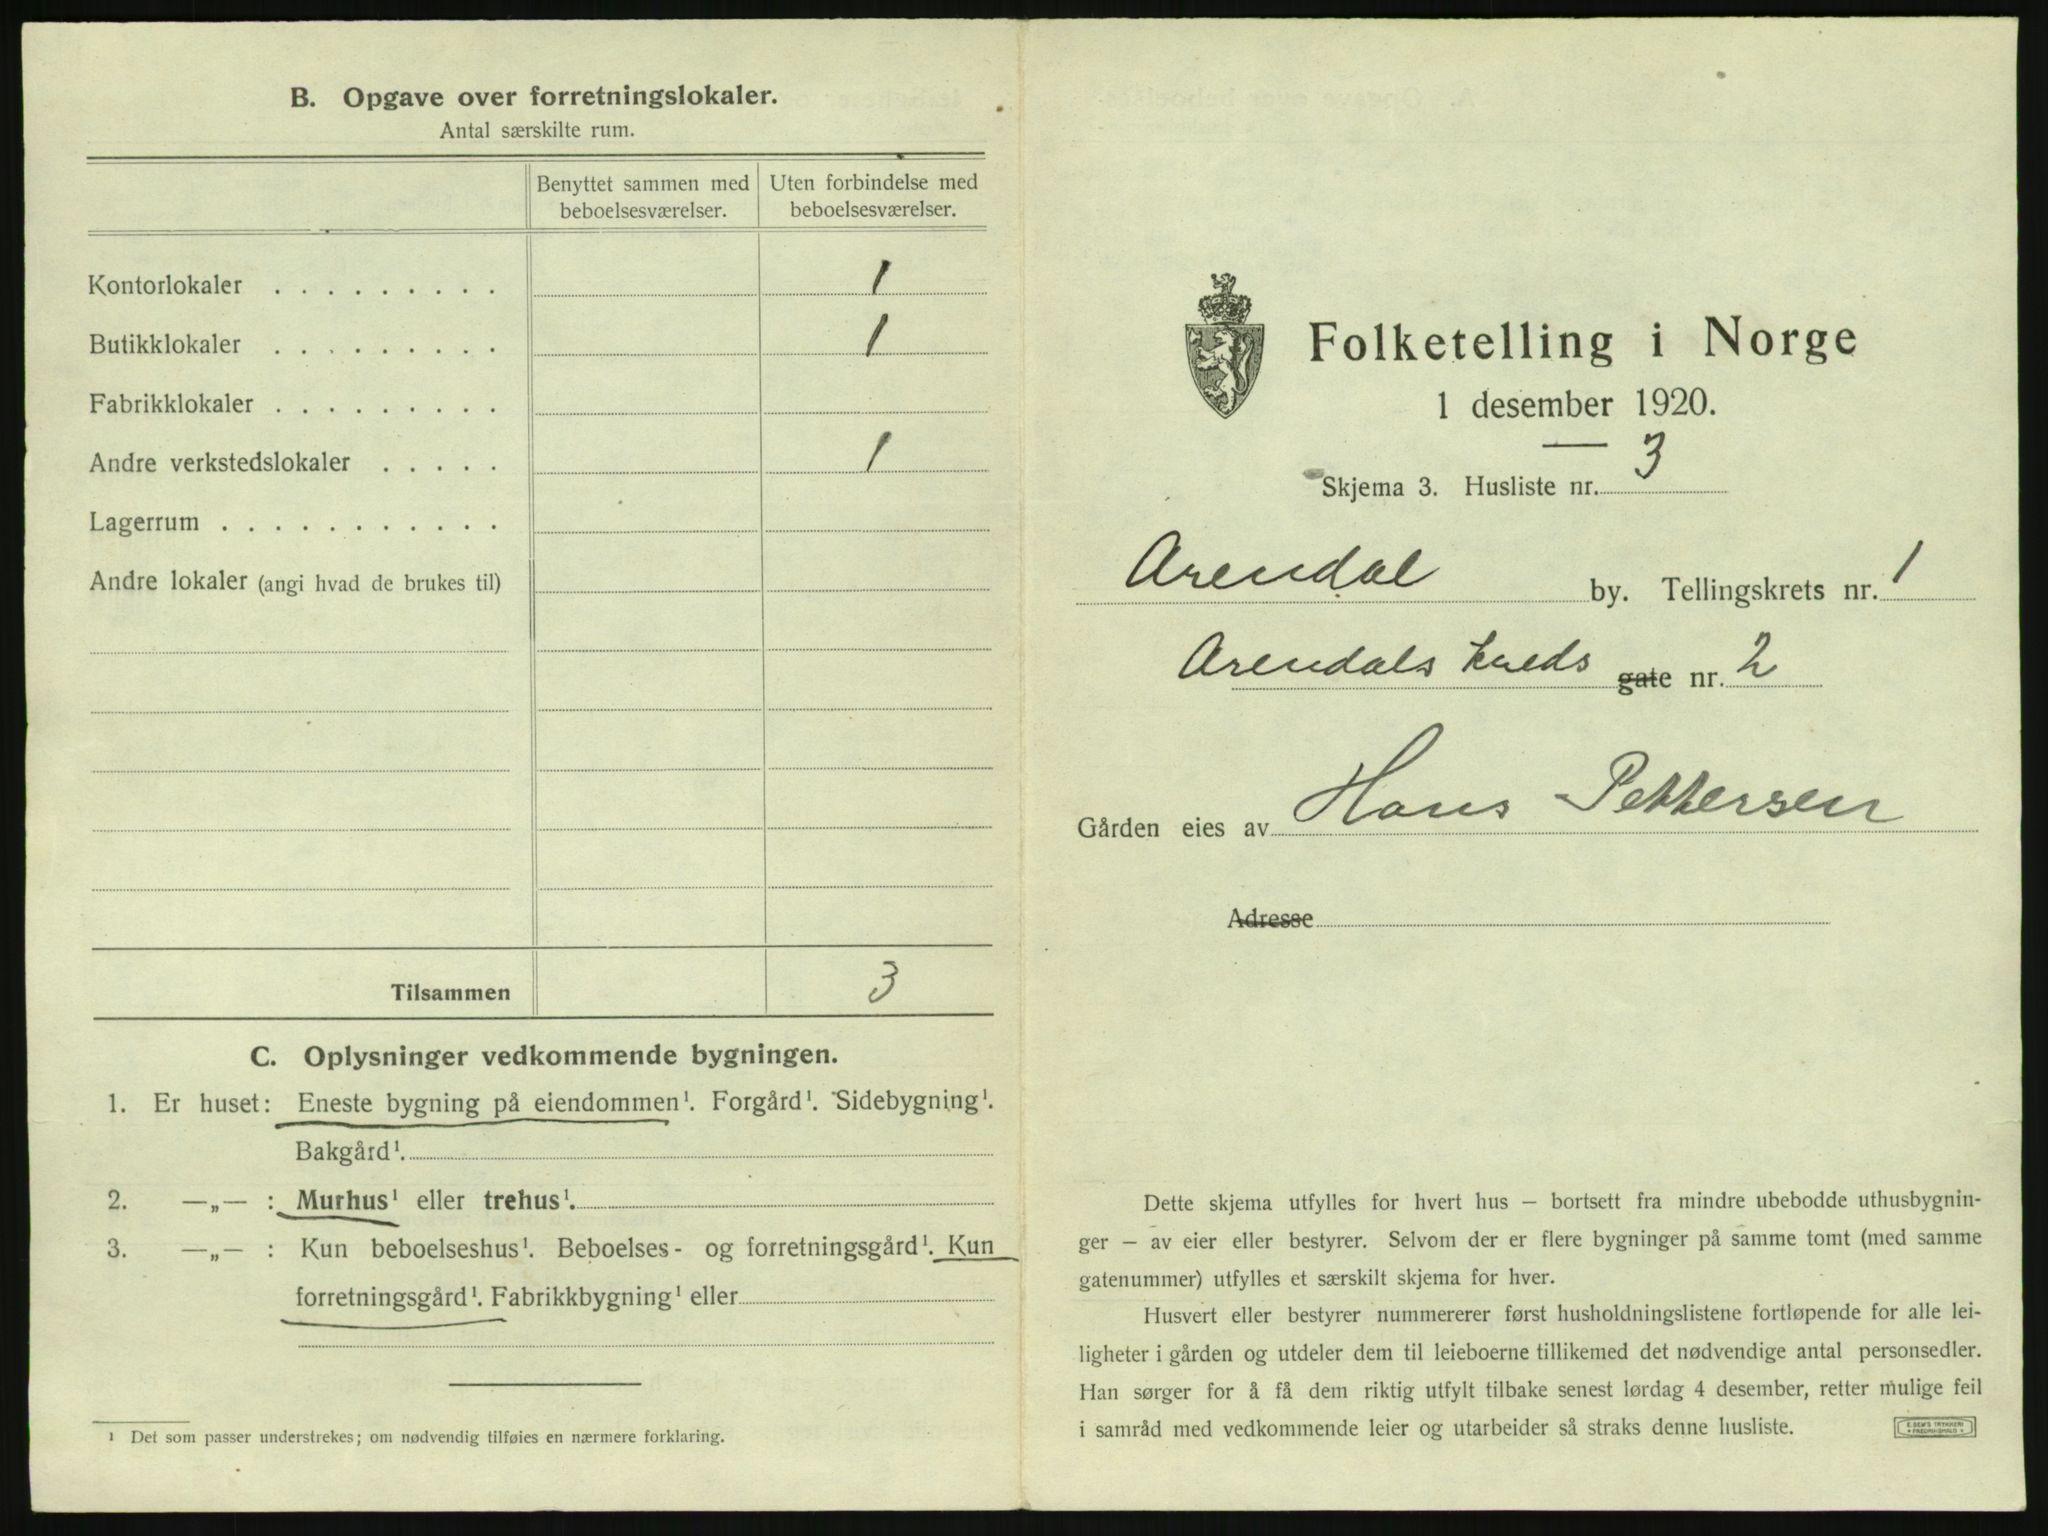 B. Opgave over forretningslokaler.
Antal særskilte rum.
Benyttet sammen med beboelsesværelser.
Uten forbindelse med beboelsesværelser.
Kontorlokaler . . . . . . . . . 1
Butikklokaler . . . . . . . . . 1
Fabrikklokaler . . . . . . . . .
Andre verkstedslokaler . . . . . 1
Lagerrum . . . . . . . . . . .
Andre lokaler (angi hvad de brukes til)
Tilsammen 3
C. Oplysninger vedkommende bygningen.
1. Er huset: Eneste bygning på eiendommen¹. Forgård¹. Sidebygning¹.
Bakgård¹.
2. —„— : Murhus¹ eller trehus¹.
3. —„— : Kun beboelseshus¹. Beboelses- og forretningsgård¹. Kun
forretningsgård¹. Fabrikkbygning¹ eller
¹ Det som passer understrekes; om nødvendig tilføies en nærmere forklaring.
Folketelling i Norge
1 desember 1920.
Skjema 3. Husliste nr. 3
Arendal by. Tellingskrets nr. 1
Arendals gate nr. 2
Gården eies av Hans Pettersen
Adresse
Dette skjema utfylles for hvert hus – bortsett fra mindre ubebodde uthusbygnin-
ger – av eier eller bestyrer. Selvom der er flere bygninger på samme tomt (med samme
gatenummer) utfylles et særskilt skjema for hver.
Husvert eller bestyrer nummererer først husholdningslistene fortløpende for alle lei-
ligheter i gården og utdeler dem til leieboerne tillikemed det nødvendige antal personsedler.
Han sørger for å få dem riktig utfylt tilbake senest lørdag 4 desember, retter mulige feil
i samråd med vedkommende leier og utarbeider så straks denne husliste.
E. SEM'S TRYKKERI
FREDRIKSHALD